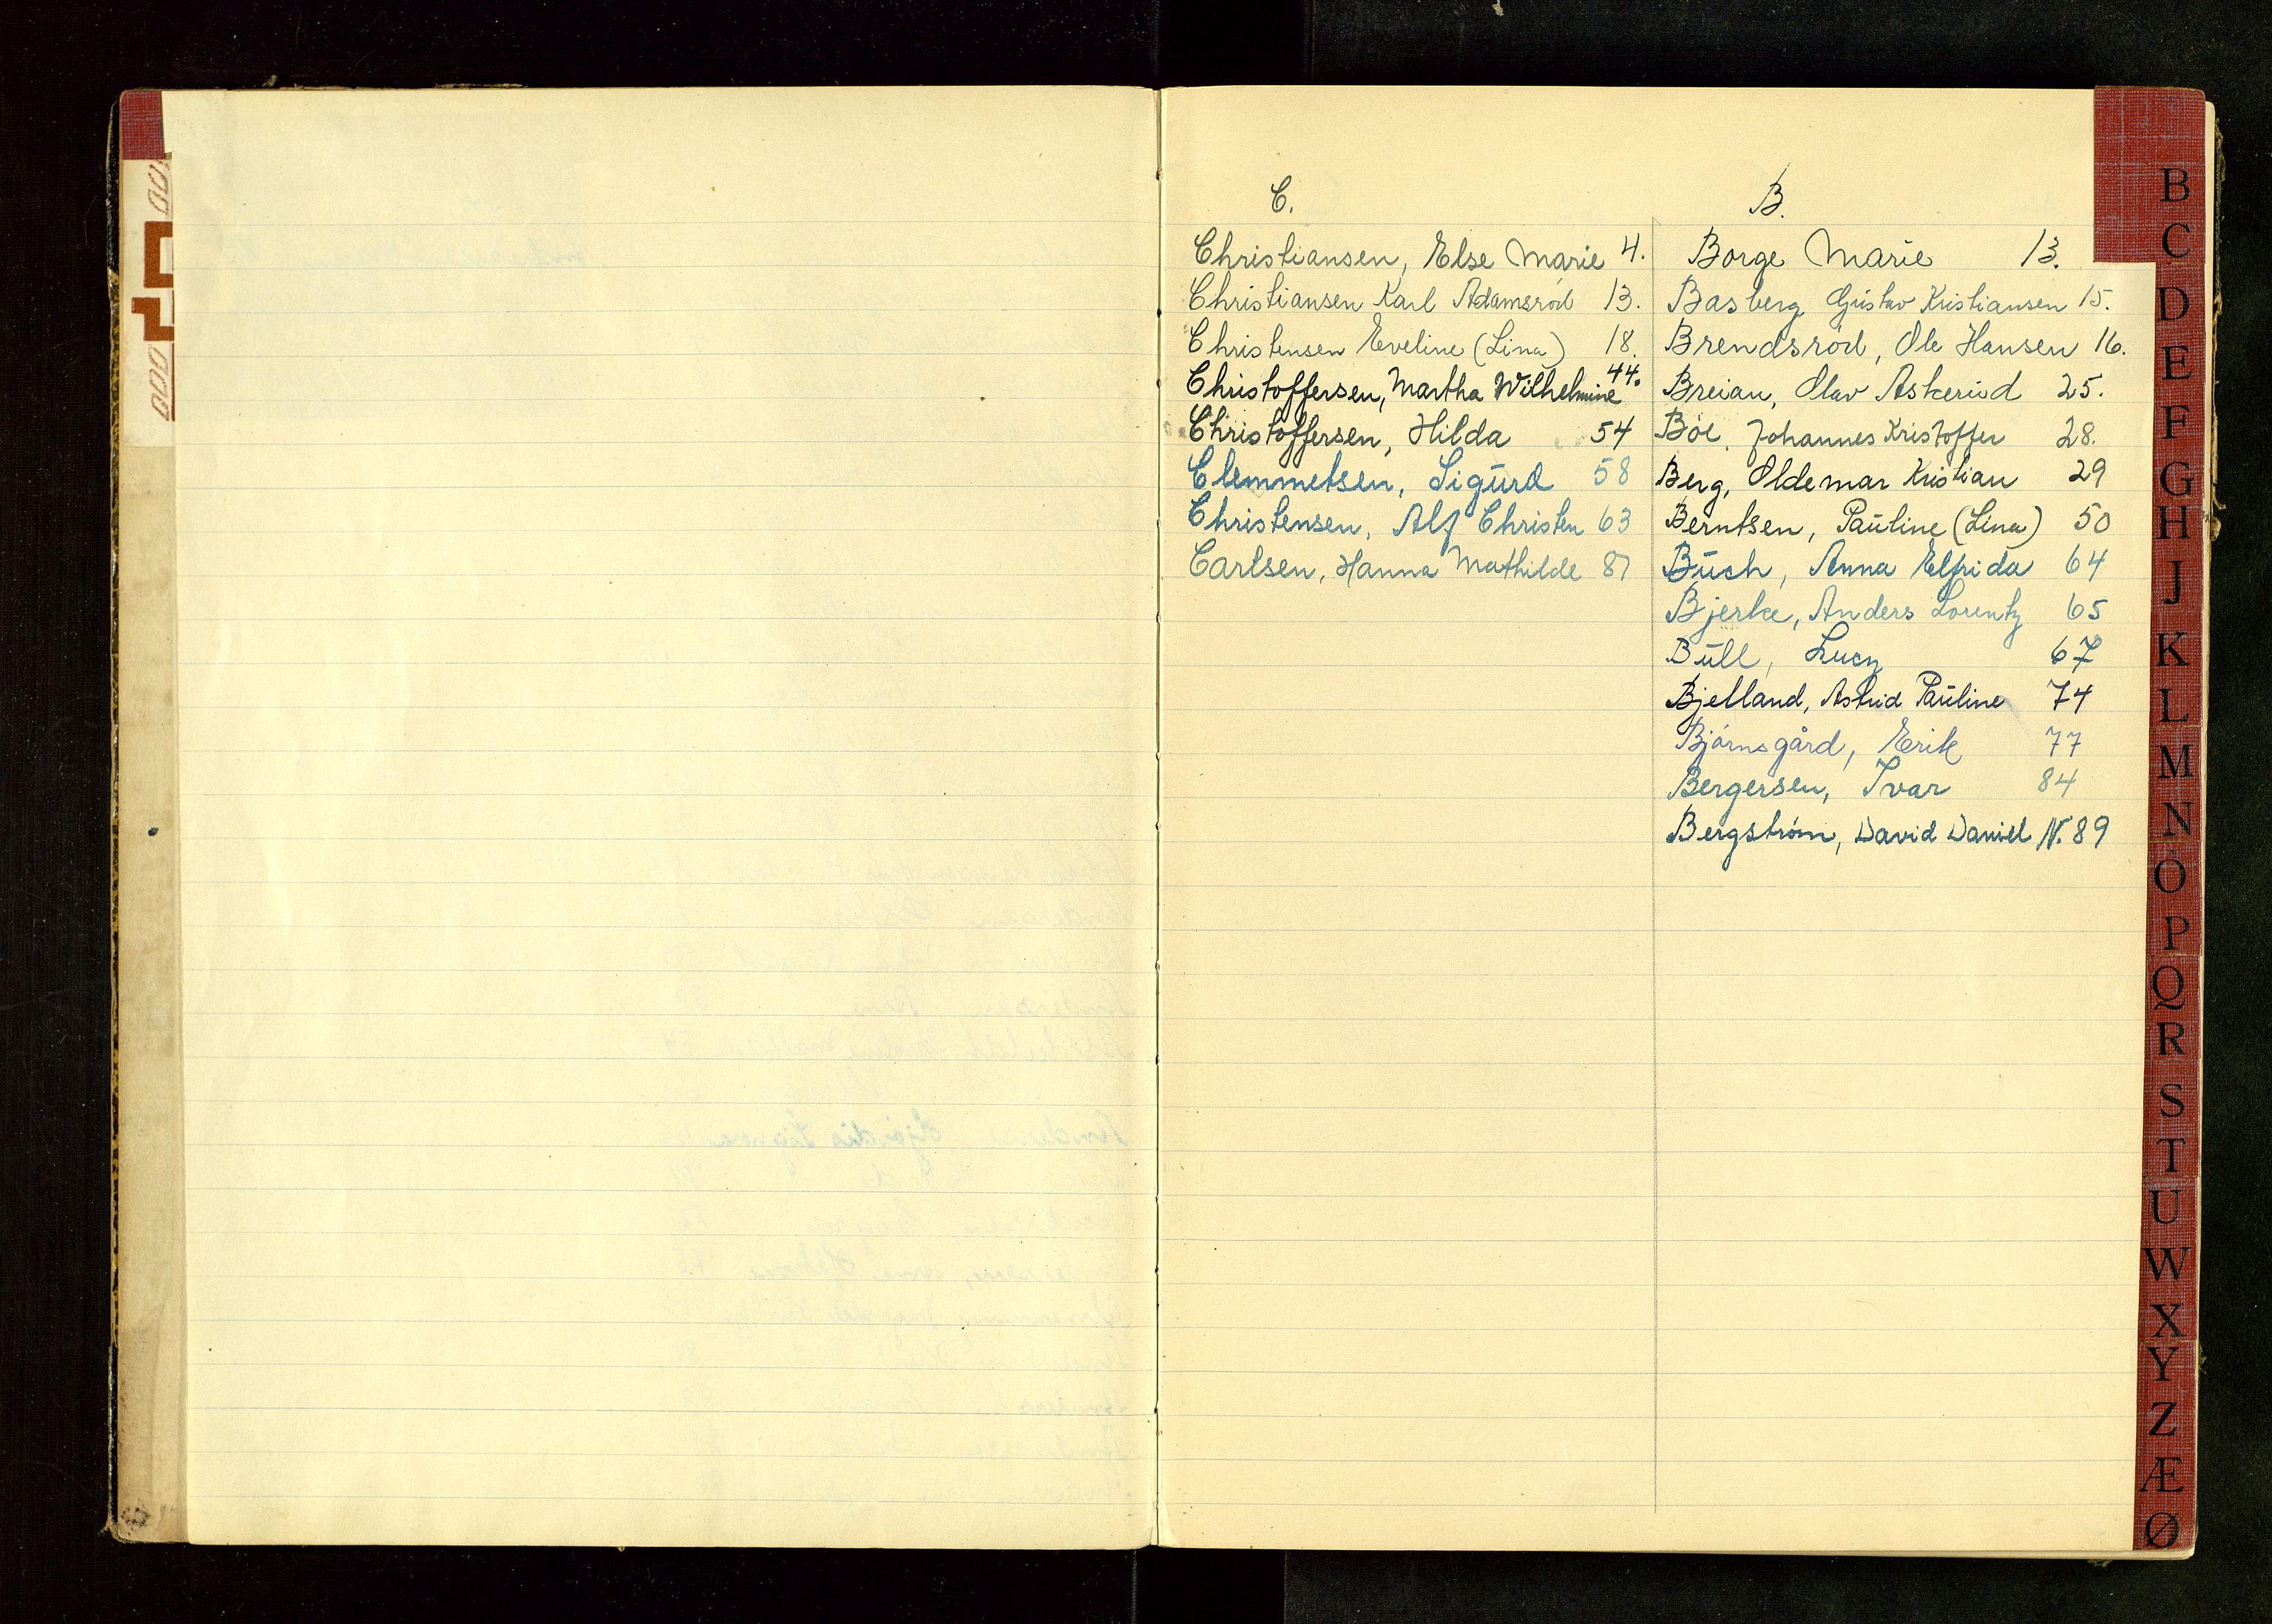 C.
Christiansen, Else Marie 4.
Christiansen Karl Adamsrød 13.
Christensen Eveline (Lina) 18.
Christoffersen, Martha Wilhelmine 44.
Christoffersen, Hilda 54
Clemmetsen, Sigurd 58
Christensen, Alf Christen 63
Carlsen, Hanna Mathilde 87
B.
Borge Marie 13.
Basberg Gustav Kristiansen 15.
Brendsrød, Ole Hansen 16.
Breian, Olav Askerød 25.
Bøe, Johannes Kristoffer 28.
Berg, Oldemar Kristian 29
Berntsen, Pauline (Lina) 50
Buch, Anna Elfrida 64
Bjerke, Anders Lorentz 65
Bull, Lucy 67
Bjelland, Astrid Pauline 74
Bjørnsgård, Erik 77
Bergersen, Ivar 84
Bergstrøm, David Daniel N. 89
B
C
D
E
F
G
H
J
K
L
M
N
O
P
Q
R
S
T
U
W
X
Y
Z
Æ
Ø